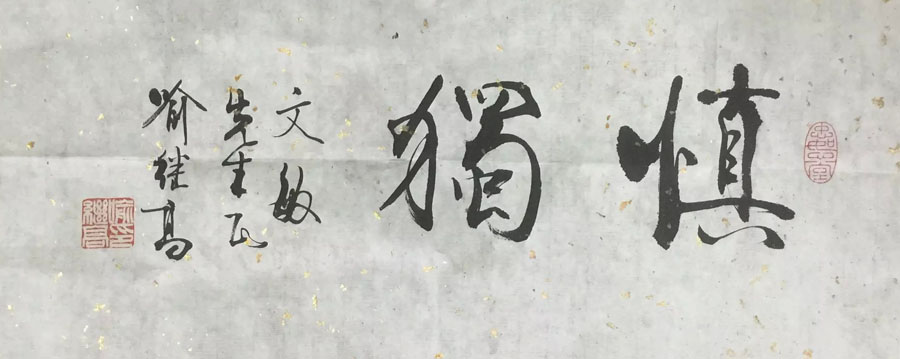 慎獨
文敏
先生正
喻继高